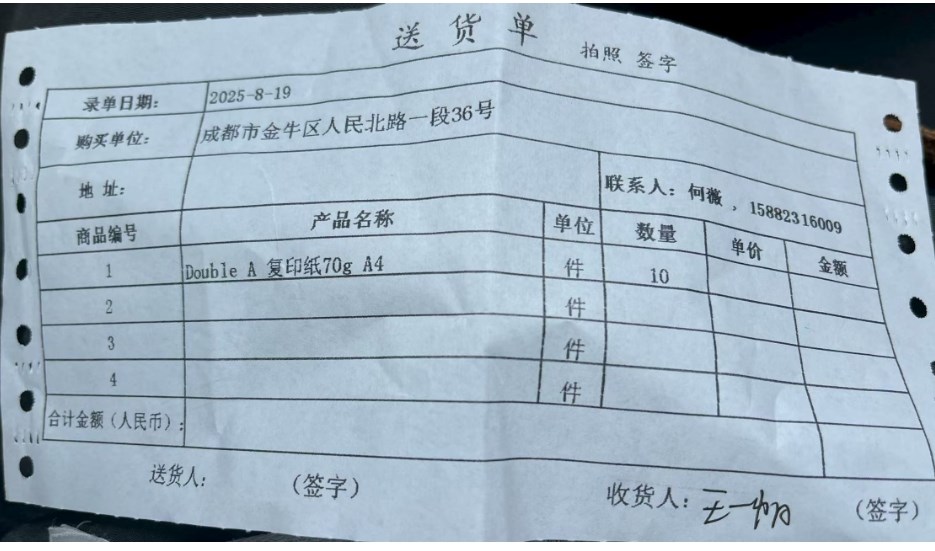 送 货 单 拍照 签字
录单日期: 2025-8-19
购买单位: 成都市金牛区人民北路一段36号
地 址: 联系人: 何薇 , 15882316009
商品编号 产品名称 单位 数量 单价 金额
1 Double A 复印纸70g A4 件 10
2 件
3 件
4 件
合计金额(人民币):
送货人: (签字) 收货人: (签字)